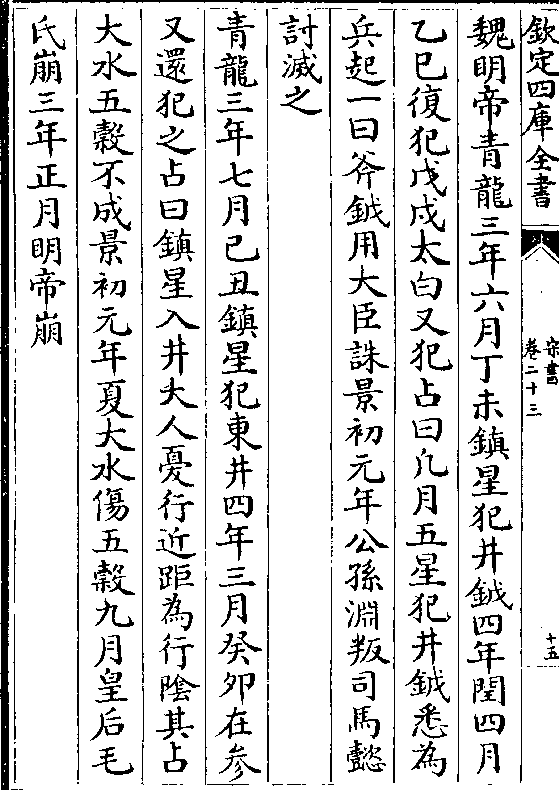 欽定四庫全書
宋書
卷二十三
十五
魏明帝青龍三年六月丁未鎮星犯井鉞四年閏四月
乙巳復犯戊戌太白又犯占曰凡月五星犯井鉞悉為
兵起一曰斧鉞用大臣誅景初元年公孫淵叛司馬懿
討滅之
青龍三年七月己丑鎮星犯東井四年三月癸夘在參
又還犯之占曰鎮星入井大人憂行近距為行隂其占
大水五糓不成景初元年夏大水傷五糓九月皇后毛
氏崩三年正月明帝崩